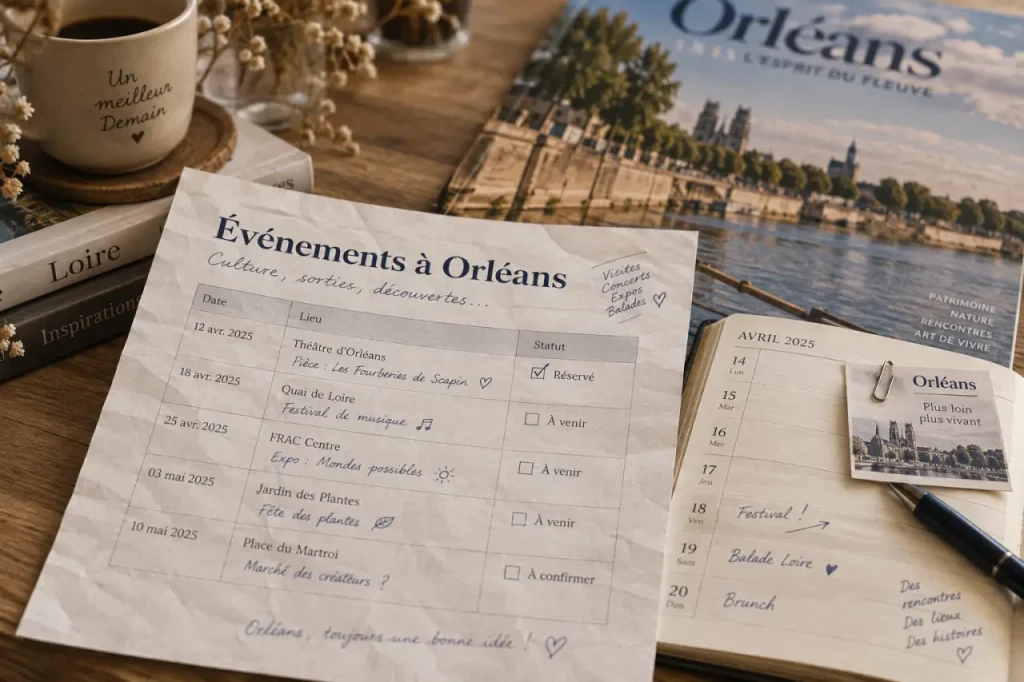 Un
meilleur
Demain
Loire
Inspiration
Orléans
L'ESPRIT DU FLEUVE
PATRIMOINE
NATURE
RENCONTRES
ART DE VIVRE
Événements à Orléans
Culture, sorties, découvertes...
Visites
Concerts
Expos
Balades ♡
Date Lieu Statut
12 avr. 2025 Théâtre d'Orléans
Pièce : Les Fourberies de Scapin ♡ ☑ Réservé
18 avr. 2025 Quai de Loire
Festival de musique ☐ À venir
25 avr. 2025 FRAC Centre
Expo : Mondes possibles ☐ À venir
03 mai 2025 Jardin des Plantes
Fête des plantes ☐ À venir
10 mai 2025 Place du Martroi
Marché des créateurs ? ☐ À confirmer
Orléans, toujours une bonne idée ! ♡
AVRIL 2025
14
Lun
15
Mar
16
Mer
17
Jeu
18
Ven
Festival !
19
Sam
Balade Loire ♥
20
Dim
Brunch
Des
rencontres
Des lieux
Des histoires
♡
Orléans
Plus loin
plus vivant